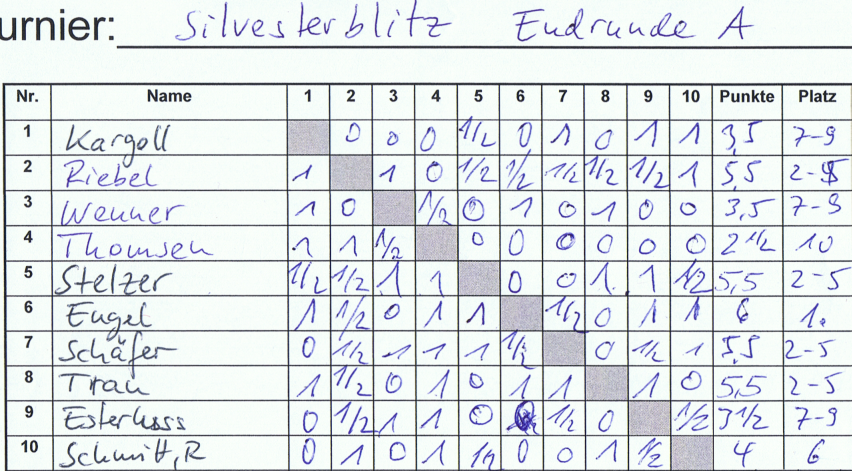 urnier: Silvesterblitz Endrunde A
Nr. Name 1 2 3 4 5 6 7 8 9 10 Punkte Platz
1 Kargoll 0 0 0 1/2 0 1 0 1 1 3,5 7-9
2 Riebel 1 1 0 1/2 1/2 1/2 1/2 1/2 1 5,5 2-5
3 Wenner 1 0 1/2 0 1 0 1 0 0 3,5 7-9
4 Thomsen 1 1 1/2 0 0 0 0 0 0 2 1/2 10
5 Stelzer 1/2 1/2 1 1 0 0 1 1 1/2 5,5 2-5
6 Engel 1 1/2 0 1 1 1/2 0 1 1 6 1.
7 Schäfer 0 1/2 1 1 1 1/2 0 1/2 1 5,5 2-5
8 Tran 1 1/2 0 1 0 1 1 1 0 5,5 2-5
9 0 1/2 1 1 0 1/2 0 1/2 3 1/2 7-9
10 Schmitt, R 0 1 0 1 1/2 0 0 1 1/2 4 6